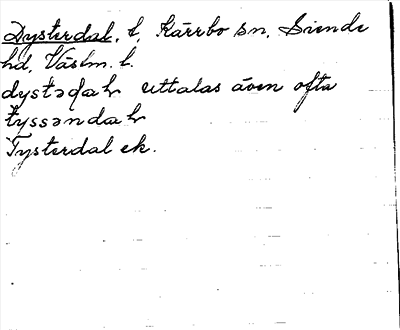 Dysterdal, t. Kärrbo sn, Siende
hd, Västm. l.
dystədaɫ uttalas även ofta
tyssəndaɫ
Tysterdal ek.